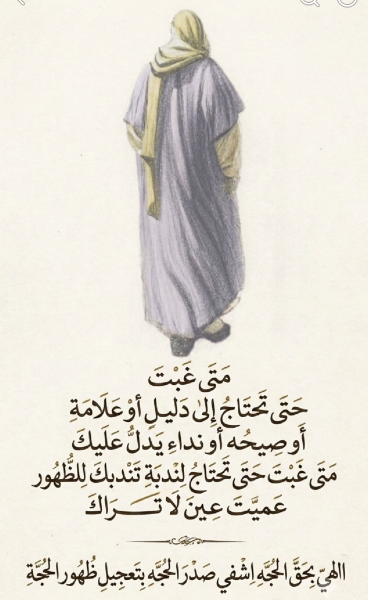 مَتَى غَبْتَ
حَتَى تَحْتَاجُ إِلىٰ دَليلِ أوْ عَلَامَةِ
أَو صِيحُه أو نداءِ يَدَلُّ عَلَيكَ
مَتىَ غَبْتَ حَتىَ تَحْتَاجُ لِنْدبَةِ تَنْدبكَ لِلظُّهُور
عَميَّتَ عِينَ لَا تَـــرَاكَ
االهيّ بِحَقَّ الحُجَّهِ اِشْفي صَدْرَ الحُجَّهِ بِتَعجِيلِ ظُهُور الحُجَّةِ